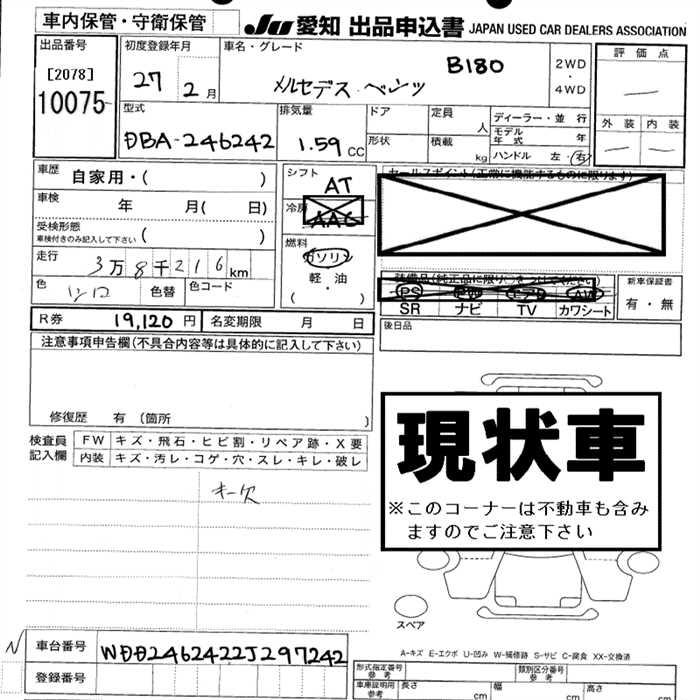 車内保管・守衛保管
JU 愛知 出品申込書 JAPAN USED CAR DEALERS ASSOCIATION
出品番号
[2078]
10075
初度登録年月
27 2月
車名・グレード
メルセデス・ベンツ B180
2WD
・
4WD
評価点
外装 内装
型式
DBA-246242
排気量
1.59 CC
ドア
形状
定員
人
積載
kg
ディーラー・並行
モデル年式 年
ハンドル 左・右
車歴
自家用・( )
車検
年 月( 日)
受検形態
車検付きのみ記入して下さい ( )
走行
3万8千216km
色
色替
色コード
シフト
AT
冷房
AAC
燃料
ガソリン
・
軽・油
( )
セールスポイント(正常に機能するものに限ります)
装備品(純正品に限り○をつけてください)
PS PW エアB AW
SR ナビ TV カワシート
新車保証書
有・無
後日品
R券 19,120円 名変期限 月 日
注意事項申告欄(不具合内容等は具体的に記入して下さい)
修復歴 有(箇所 )
検査員
記入欄
FW キズ・飛石・ヒビ割・リペア跡・X要
内装 キズ・汚レ・コゲ・穴・スレ・キレ・破レ
キー欠
現状車
※このコーナーは不動車も含み
ますのでご注意下さい
スペア
A-キズ E-エクボ U-凹み W-補修跡 S-サビ C-腐食 XX-交換済
N
車台番号 WDD2462422J297242
登録番号
形式指定番号
参考
類別区分番号
参考
車庫証明用
参考
長さ cm 幅 cm 高さ cm